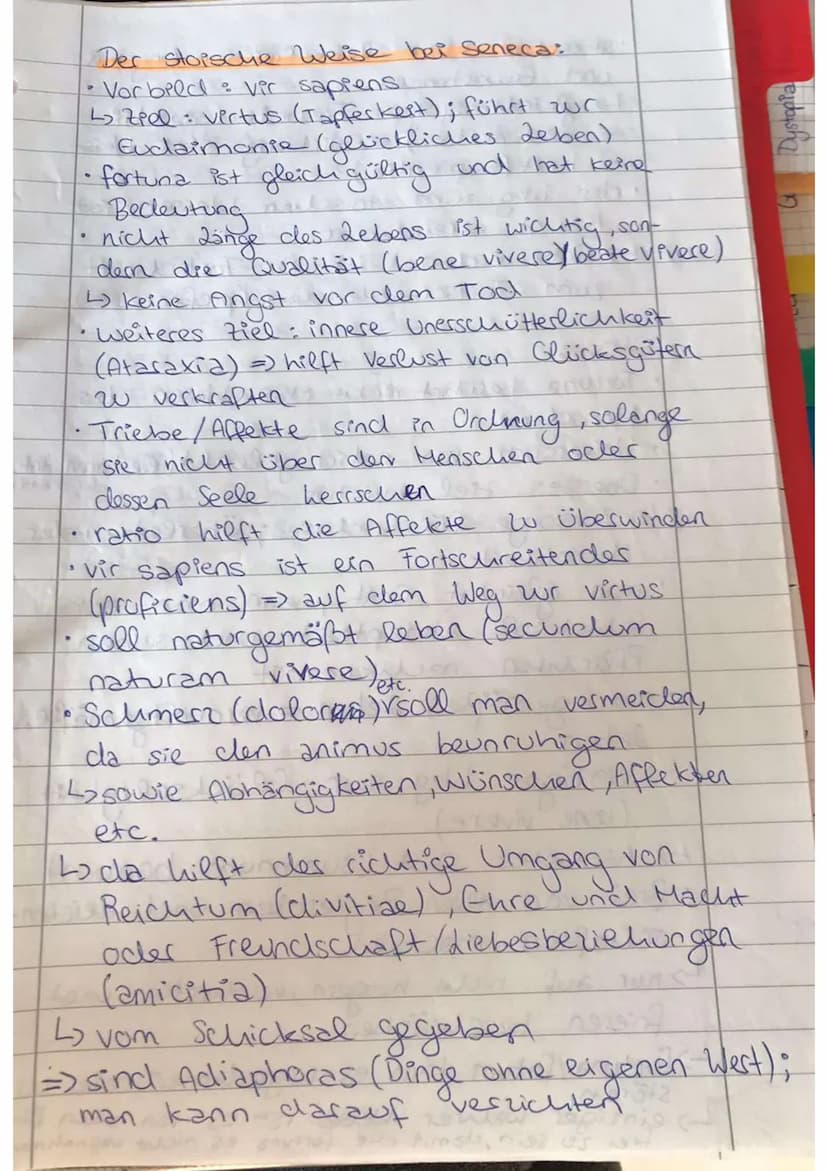 Der stoische Weise bei Seneca:
• Vorbild : vir sapiens
↳ Ziel : virtus (Tapferkeit) ; führt zur
Eudaimonie (glückliches Leben)
• fortuna ist gleichgültig und hat keine
Bedeutung
• nicht Länge des Lebens ist wichtig, son-
dern die Qualität (bene vivere/beate vivere)
↳ keine Angst vor dem Tod
• weiteres Ziel : innere Unerschütterlichkeit
(Ataraxia) => hilft Verlust von Glücksgütern
zu verkraften
• Triebe/Affekte sind in Ordnung, solange
sie nicht über den Menschen oder
dessen Seele herrschen
• ratio hilft die Affekte zu überwinden
• vir sapiens ist ein Fortschreitender
(proficiens) => auf dem Weg zur virtus
• soll naturgemäßt leben (secundum
naturam vivere)
• Schmerz (dolor) etc. soll man vermeiden,
da sie den animus beunruhigen
↳ sowie Abhängigkeiten, Wünschen, Affekten
etc.
↳ da hilft der richtige Umgang von
Reichtum (divitiae), Ehre und Macht
oder Freundschaft/Liebesbeziehungen
(amicitia)
↳ vom Schicksal gegeben
=> sind Adiaphoras (Dinge ohne eigenen Wert);
man kann darauf verzichten
Dystopia